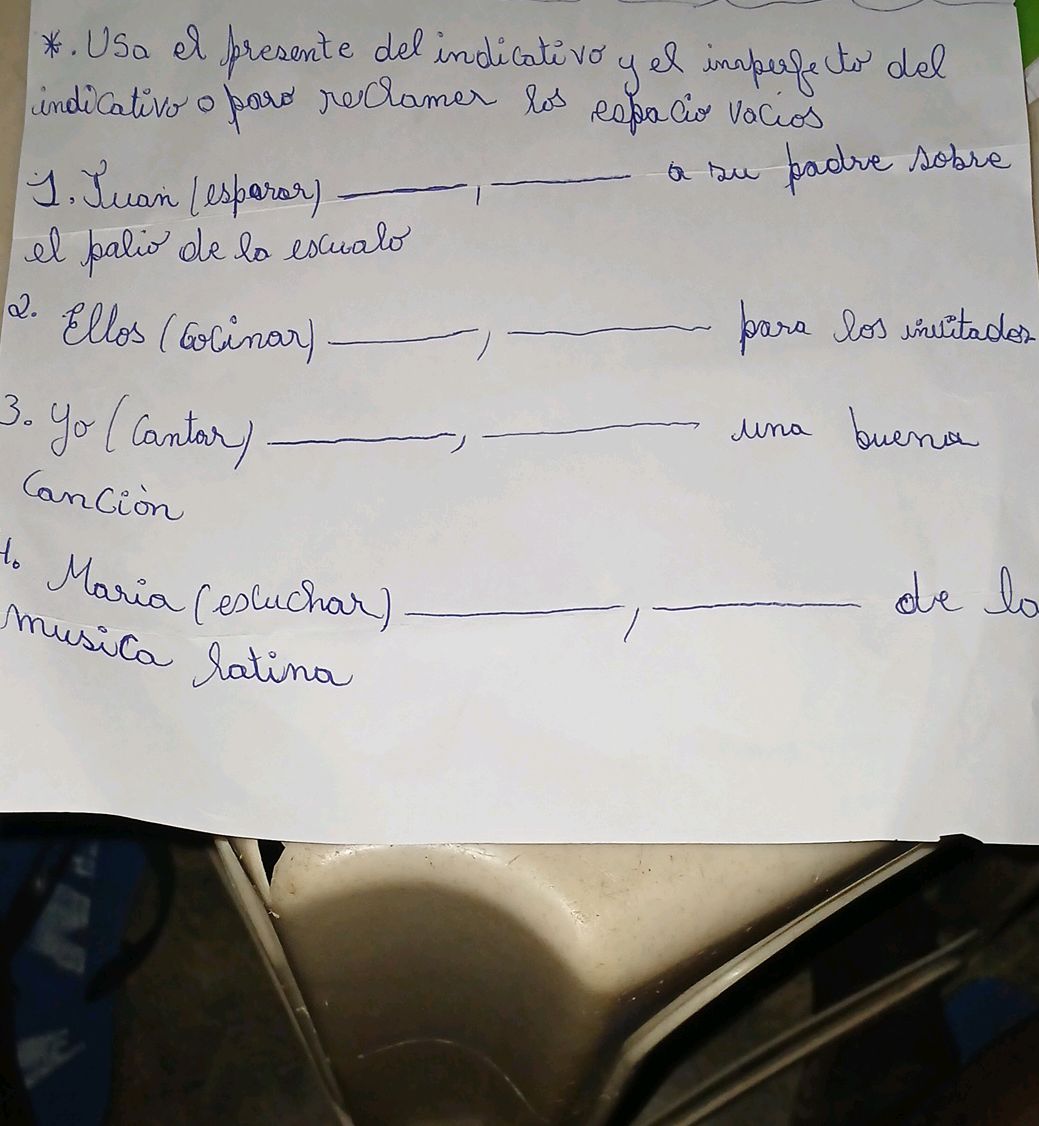 *. Usa el presente del indicativo y el imperfecto del
indicativo o para reclamer los espacio vacios
1. Juan (esparar) ______, ______ a su padre sobre
el palio de la escualo
2. Ellos (Cocinar) ______, ______ para los invitados
3. Yo (Cantar) ______, ______ una buena
Canción
4. Maria (escuchar) ______, ______ de la
musica latina